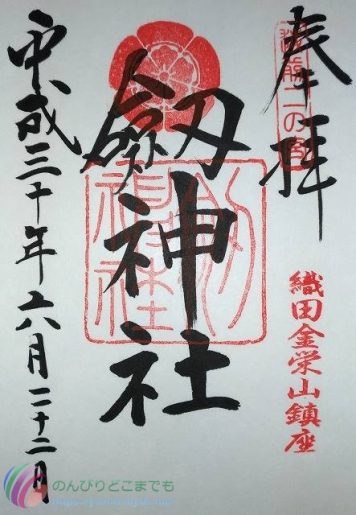 奉拝
越前二の宮
織田金栄山鎮座
劔神社
平成三十年六月二十二日
のんびりどこまでも